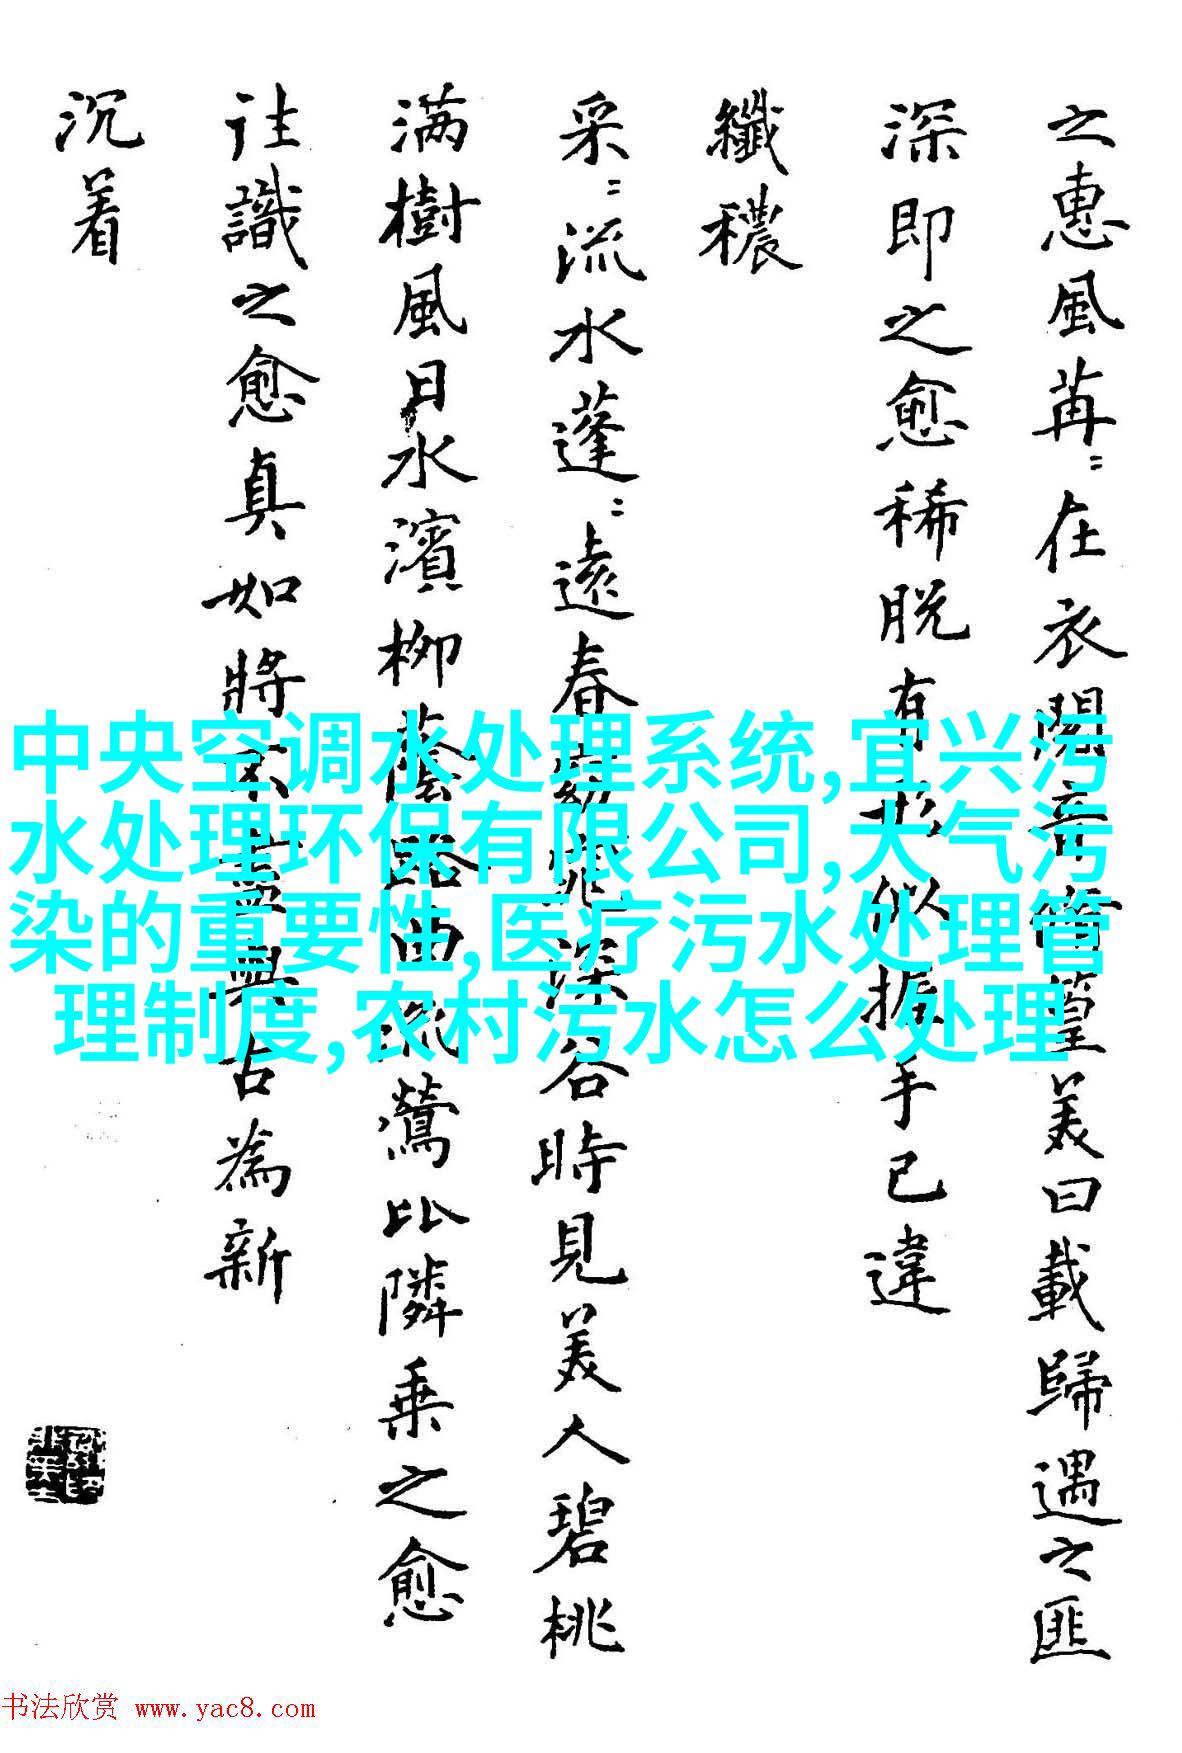 之惠風苒〻在衣閱音脩篁美曰載歸遇之匪
深即之愈稀脱有形似握手已違
纖穠
采〻流水蓬〻遠春窈窕深谷時見美人碧桃
满樹風日水濱柳蔭路曲流鶯比隣乘之愈
往識之愈真如將不盡與古為新
沉着
中央空调水处理系统,宜兴污
水处理环保有限公司,大气污
染的重要性,医疗污水处理管
理制度,农村污水怎么处理
书法欣赏 www.yac8.com